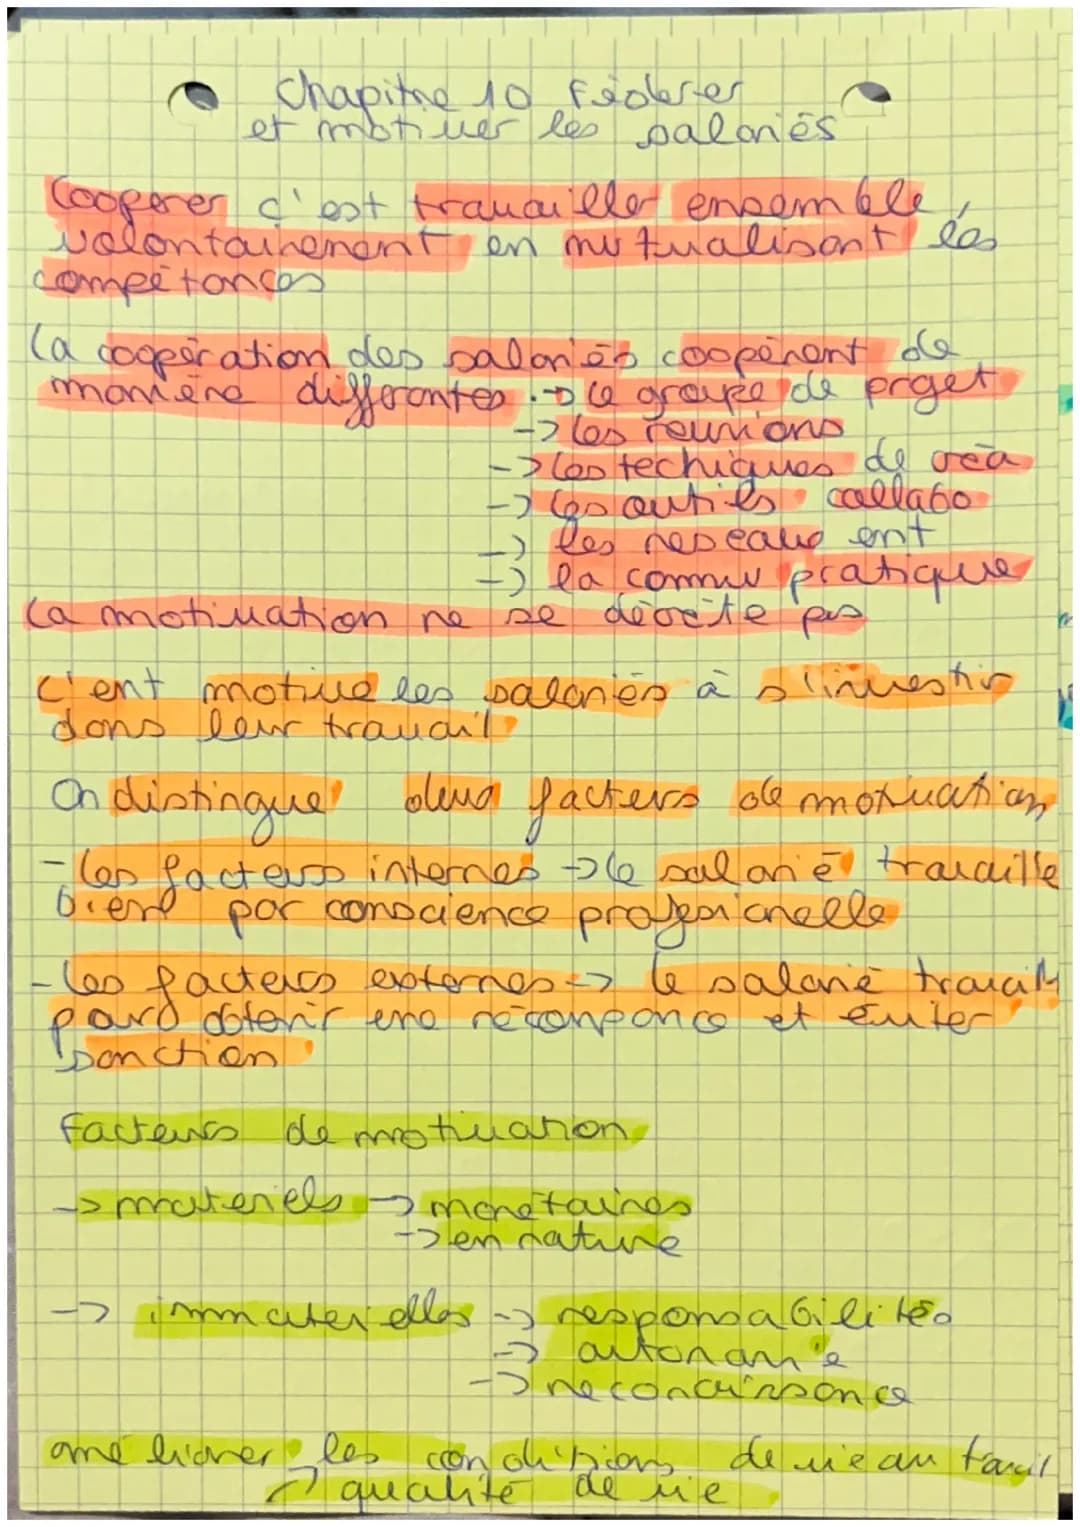 Chapitre 10 Féderer
et motiver les salariés
Cooperer c'est travailler ensemble,
volontairement en mutualisant les
compétances
La coopération des salariés coopérent de
manière differentes :-> le groupe de projet
-> les reunions
-> les techiques de créa
-> les outils collabo
-> les reseaux ent
-> la commu pratique
La motivation ne se décrète pas
C'ent motive les salariés à s'investir
dans leur travail
On distingue deux facteurs de motivation
- les facteurs internes -> le salarié travaille
bien par conscience profesionelle
- les facteurs externes -> le salarié travaill
pour obtenir une récompance et éviter
sanction
Facteurs de motivation
-> materiels -> monétaires
-> en nature
-> immaterielles -> responsabilités
-> autonomie
-> reconaissance
améliorer les conditions de vie au travail
-> qualité de vie